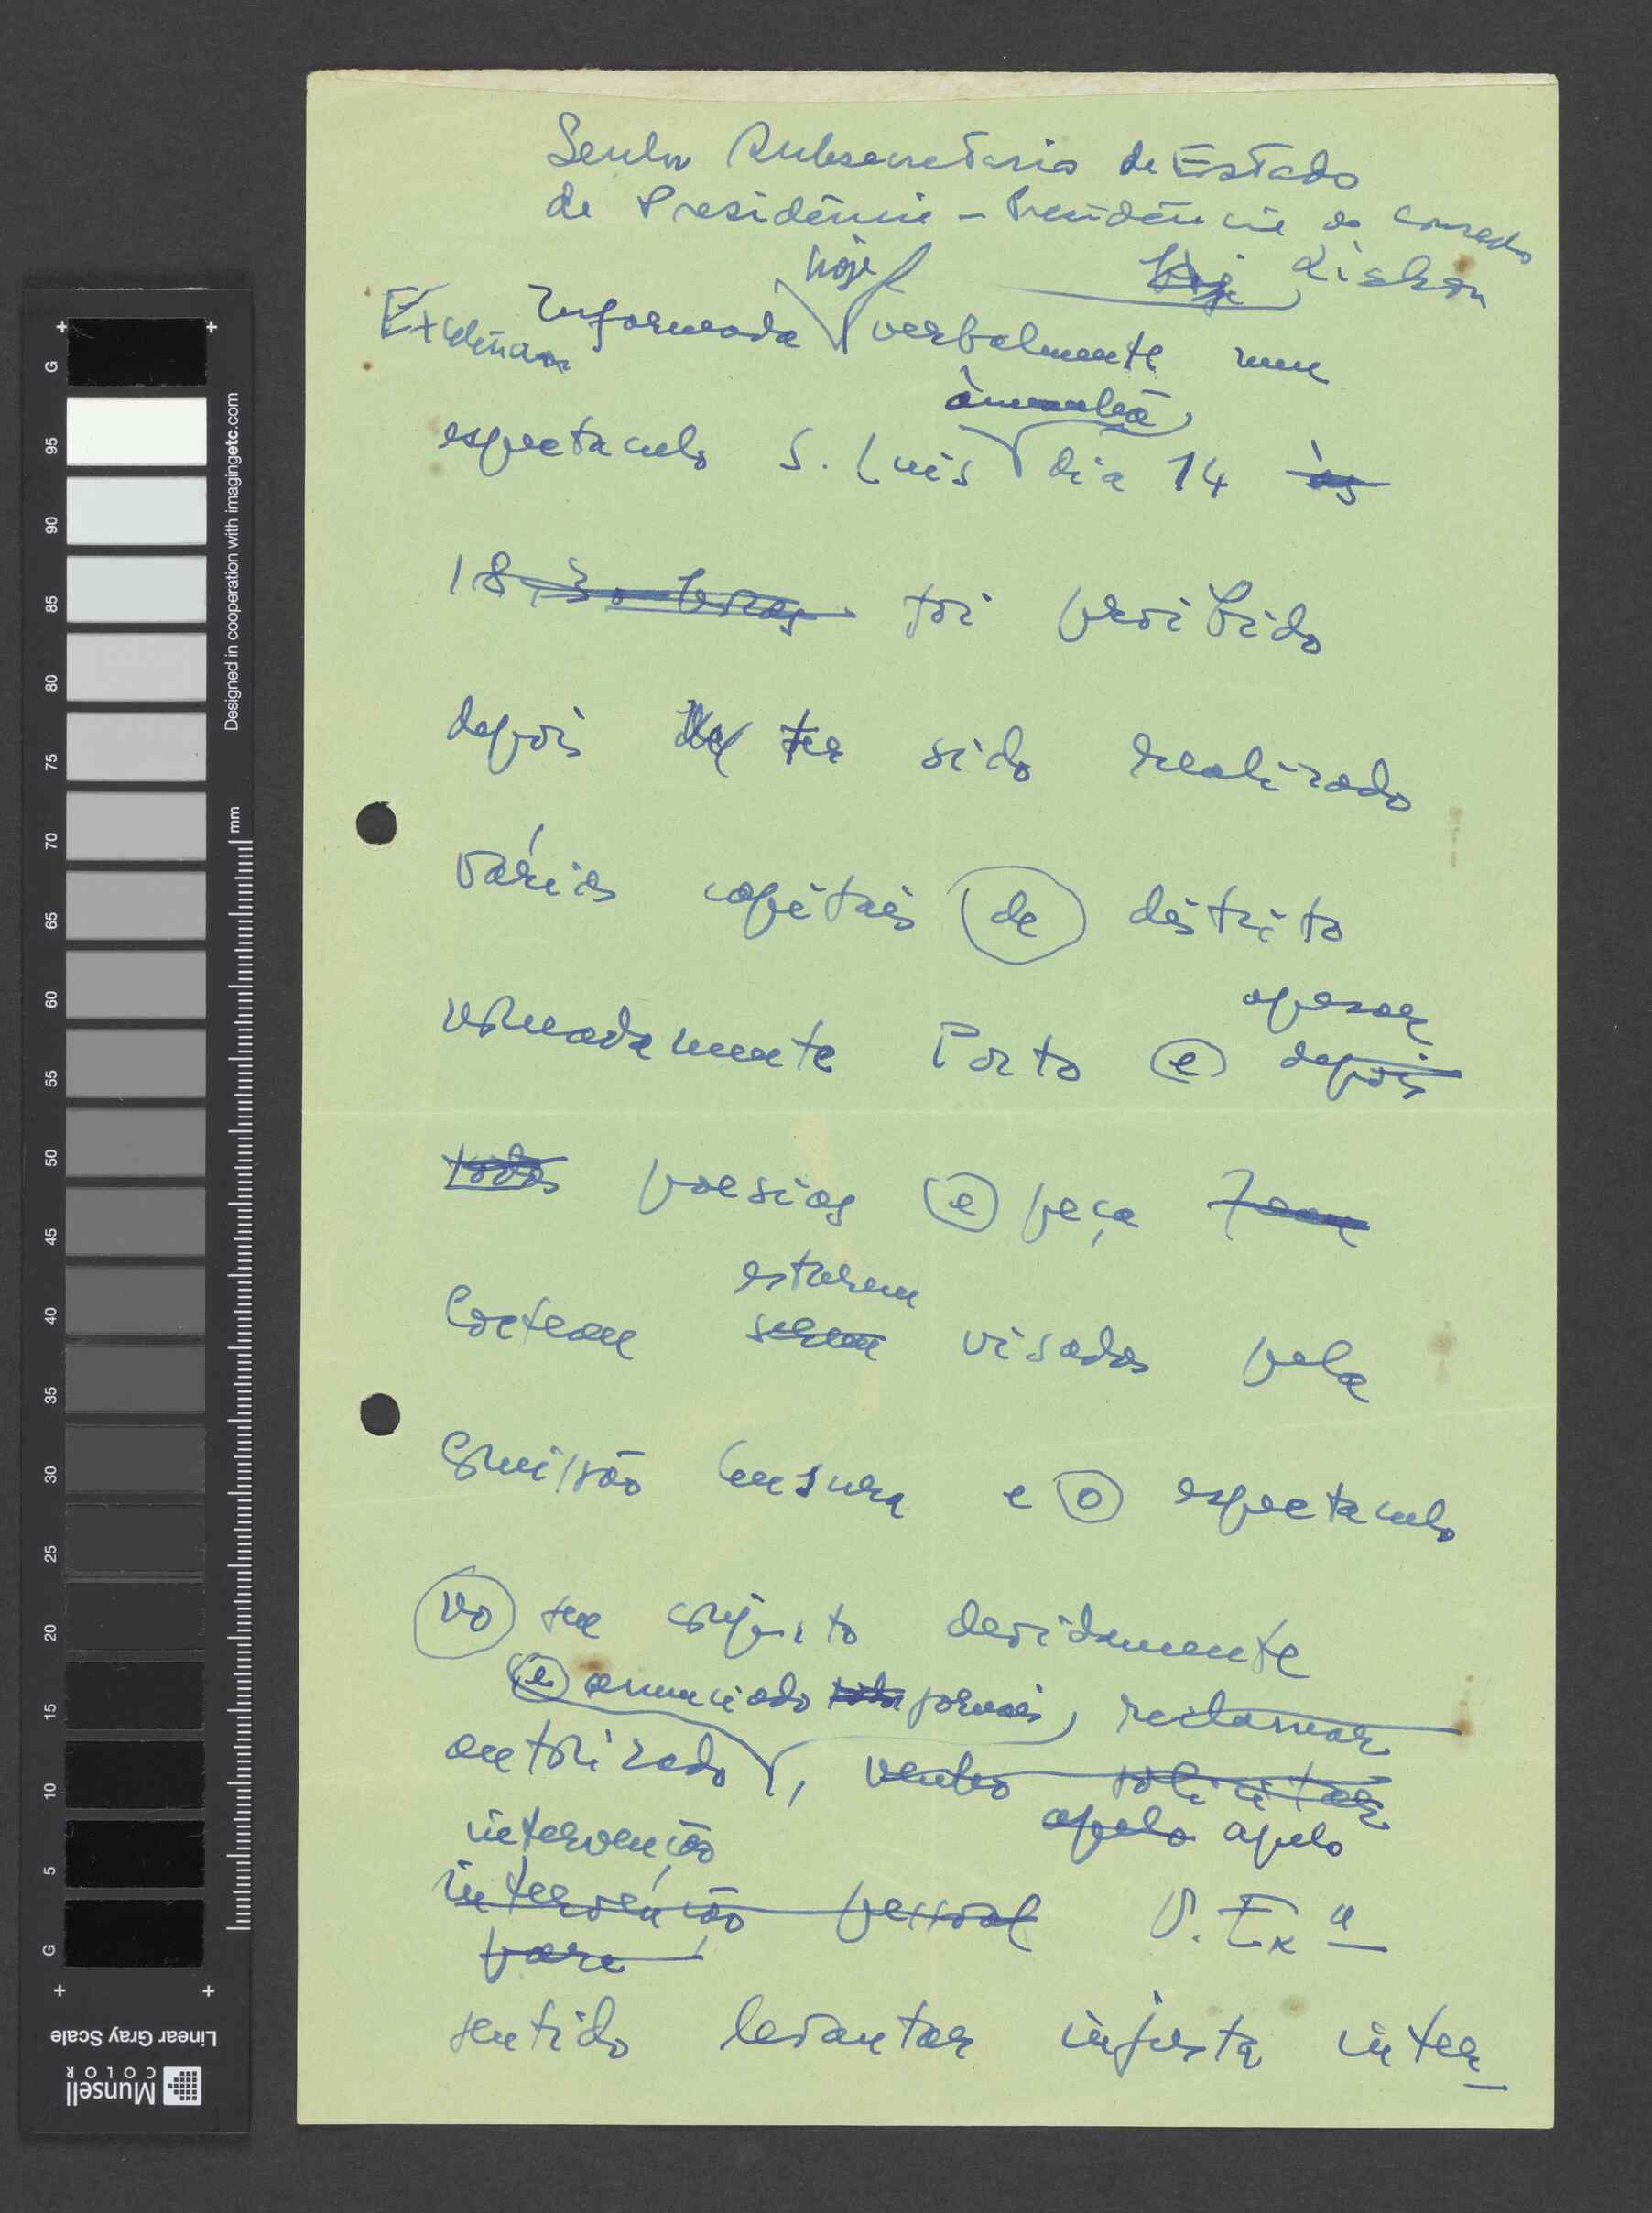 Senhor Subsecretario de Estado
de Presidência - Presidência do Conselho
hoje Hoje Lisboa
Excelência Informada verbalmente meu
àmanhã
espectaculo S. Luis dia 14 às
18,30 horas foi proibido
depois de ter sido realizado
várias capitais de distrito
apesar
nomeadamente Porto e depois
todos poesias e peça Jean
estarem
Cocteau serem visados pela
Comissão Censura e o espectaculo
no seu conjunto devidamente
e anunciado jornais, reclamar
autorizado, venho solicitar
intervenção apelo apelo
intervenção pessoal V. Exª
para
sentido levantar injusta inter_
G 95 90 85 80 75 70 65 60 55 50 45 40 35 30 25 20 15 10 5 G
mm
Designed in cooperation with imagingetc.com
Linear Gray Scale
Munsell
COLOR